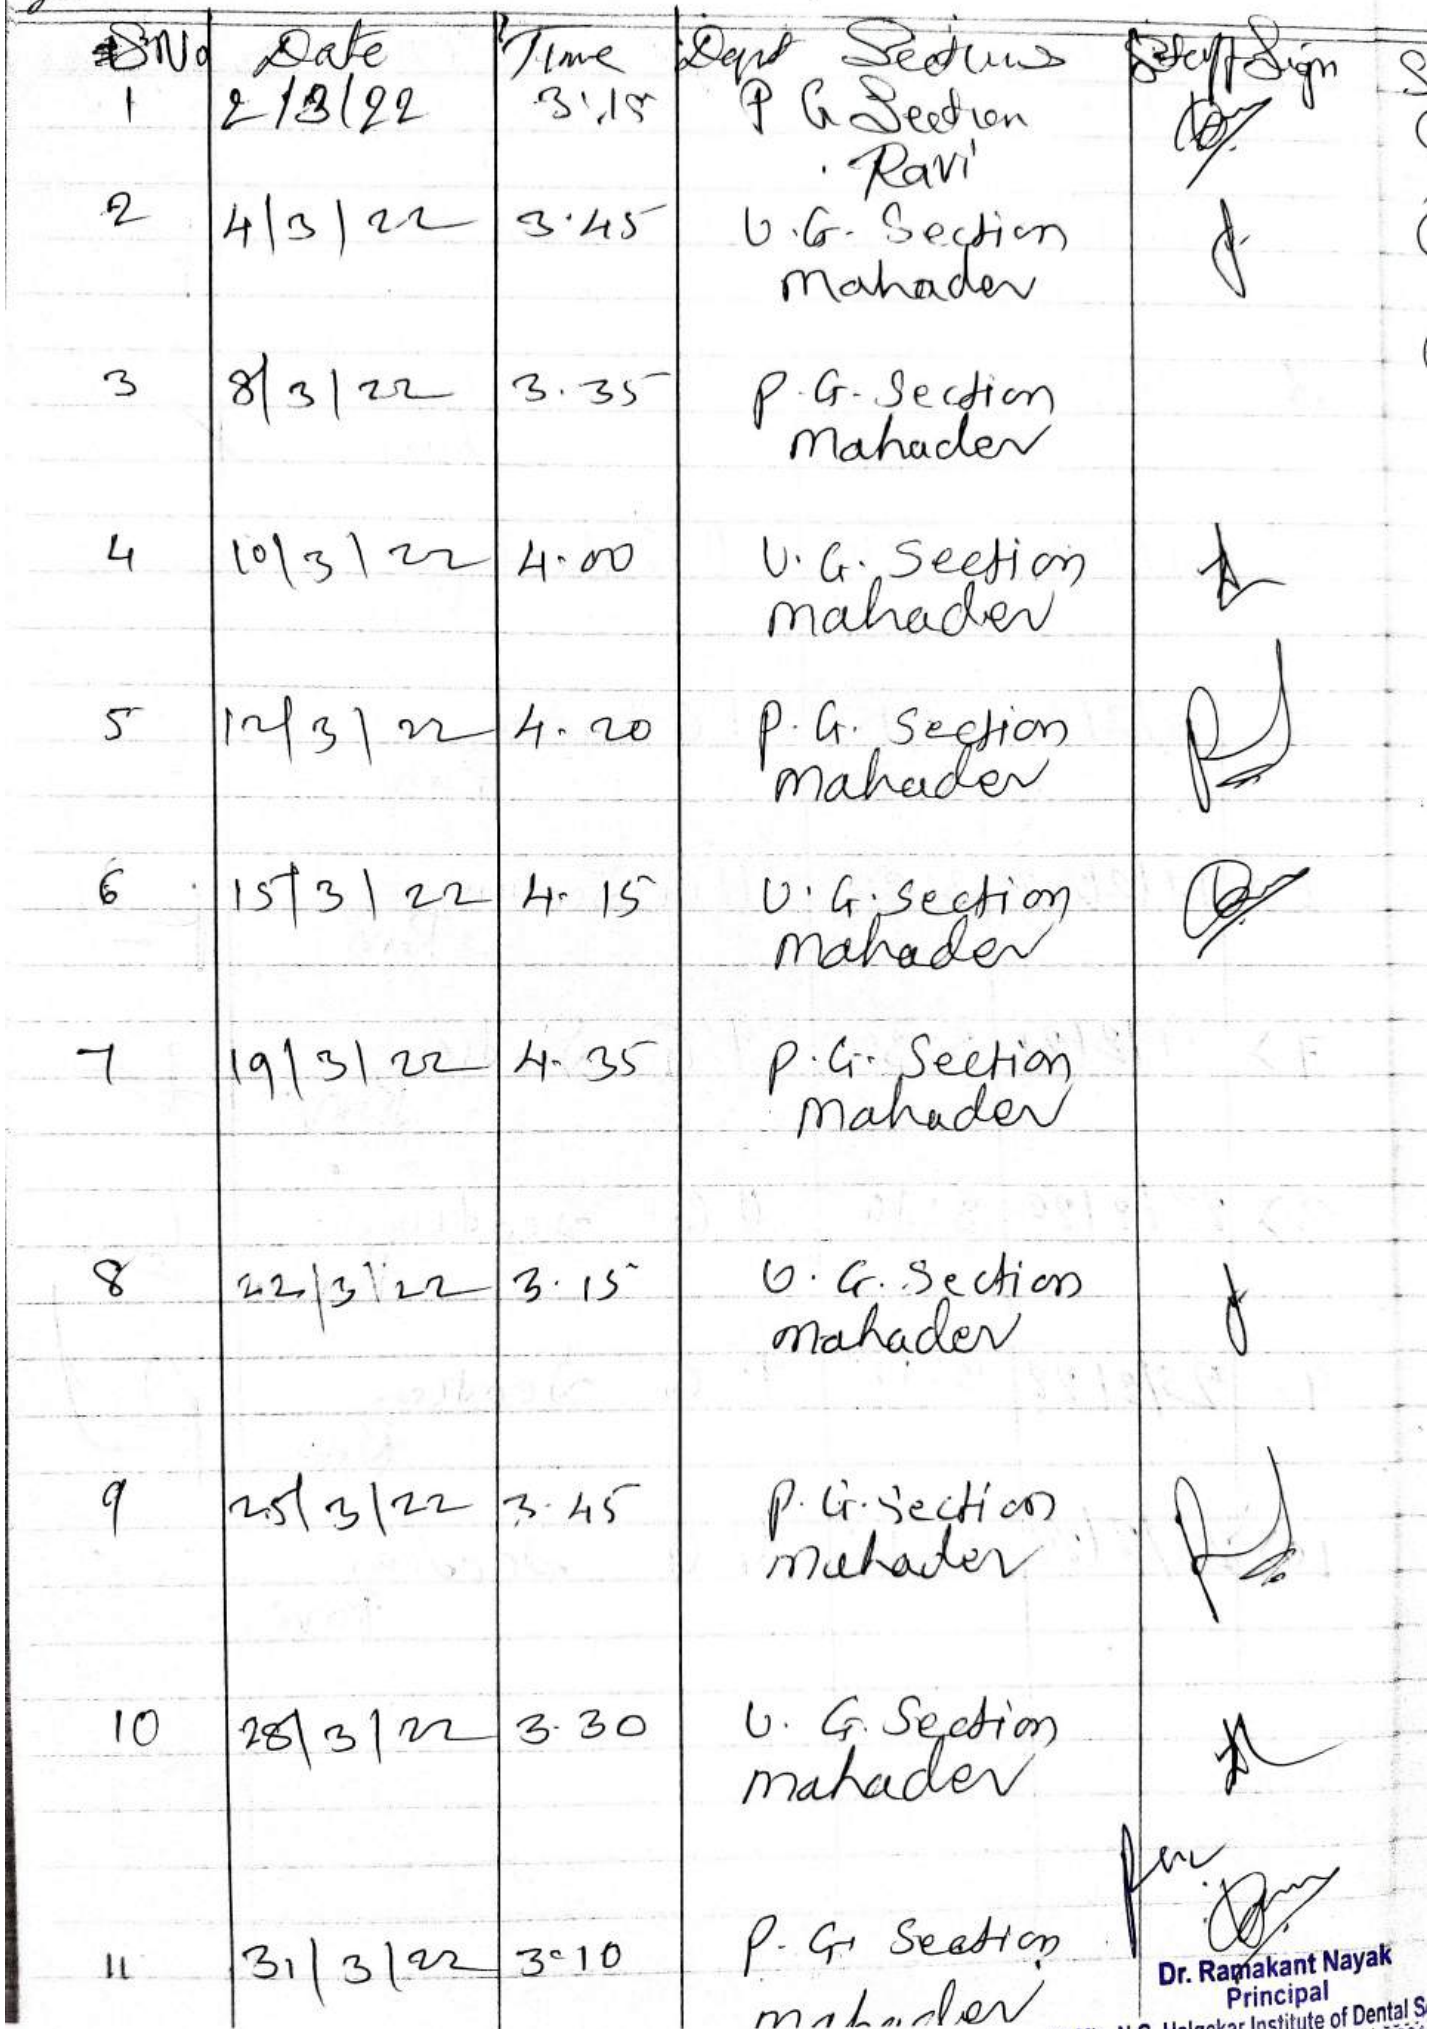 SNo Date Time Dept Sections Staff Sign S
1 2/3/22 3.15 P G Section
Ravi
2 4/3/22 3.45 U.G. Section
mahadev
3 8/3/22 3.35 P.G. Section
mahadev
4 10/3/22 4.00 U.G. Section
mahadev
5 12/3/22 4.20 P.G. Section
mahadev
6 15/3/22 4.15 U.G. Section
mahadev
7 19/3/22 4.35 P.G. Section
mahadev
8 22/3/22 3.15 U.G. Section
mahadev
9 25/3/22 3.45 P.G. Section
mahadev
10 28/3/22 3.30 U.G. Section
mahadev
11 31/3/22 3.10 P.G. Section
mahadev
Dr. Ramakant Nayak
Principal
N.G. Halgekar Institute of Dental S